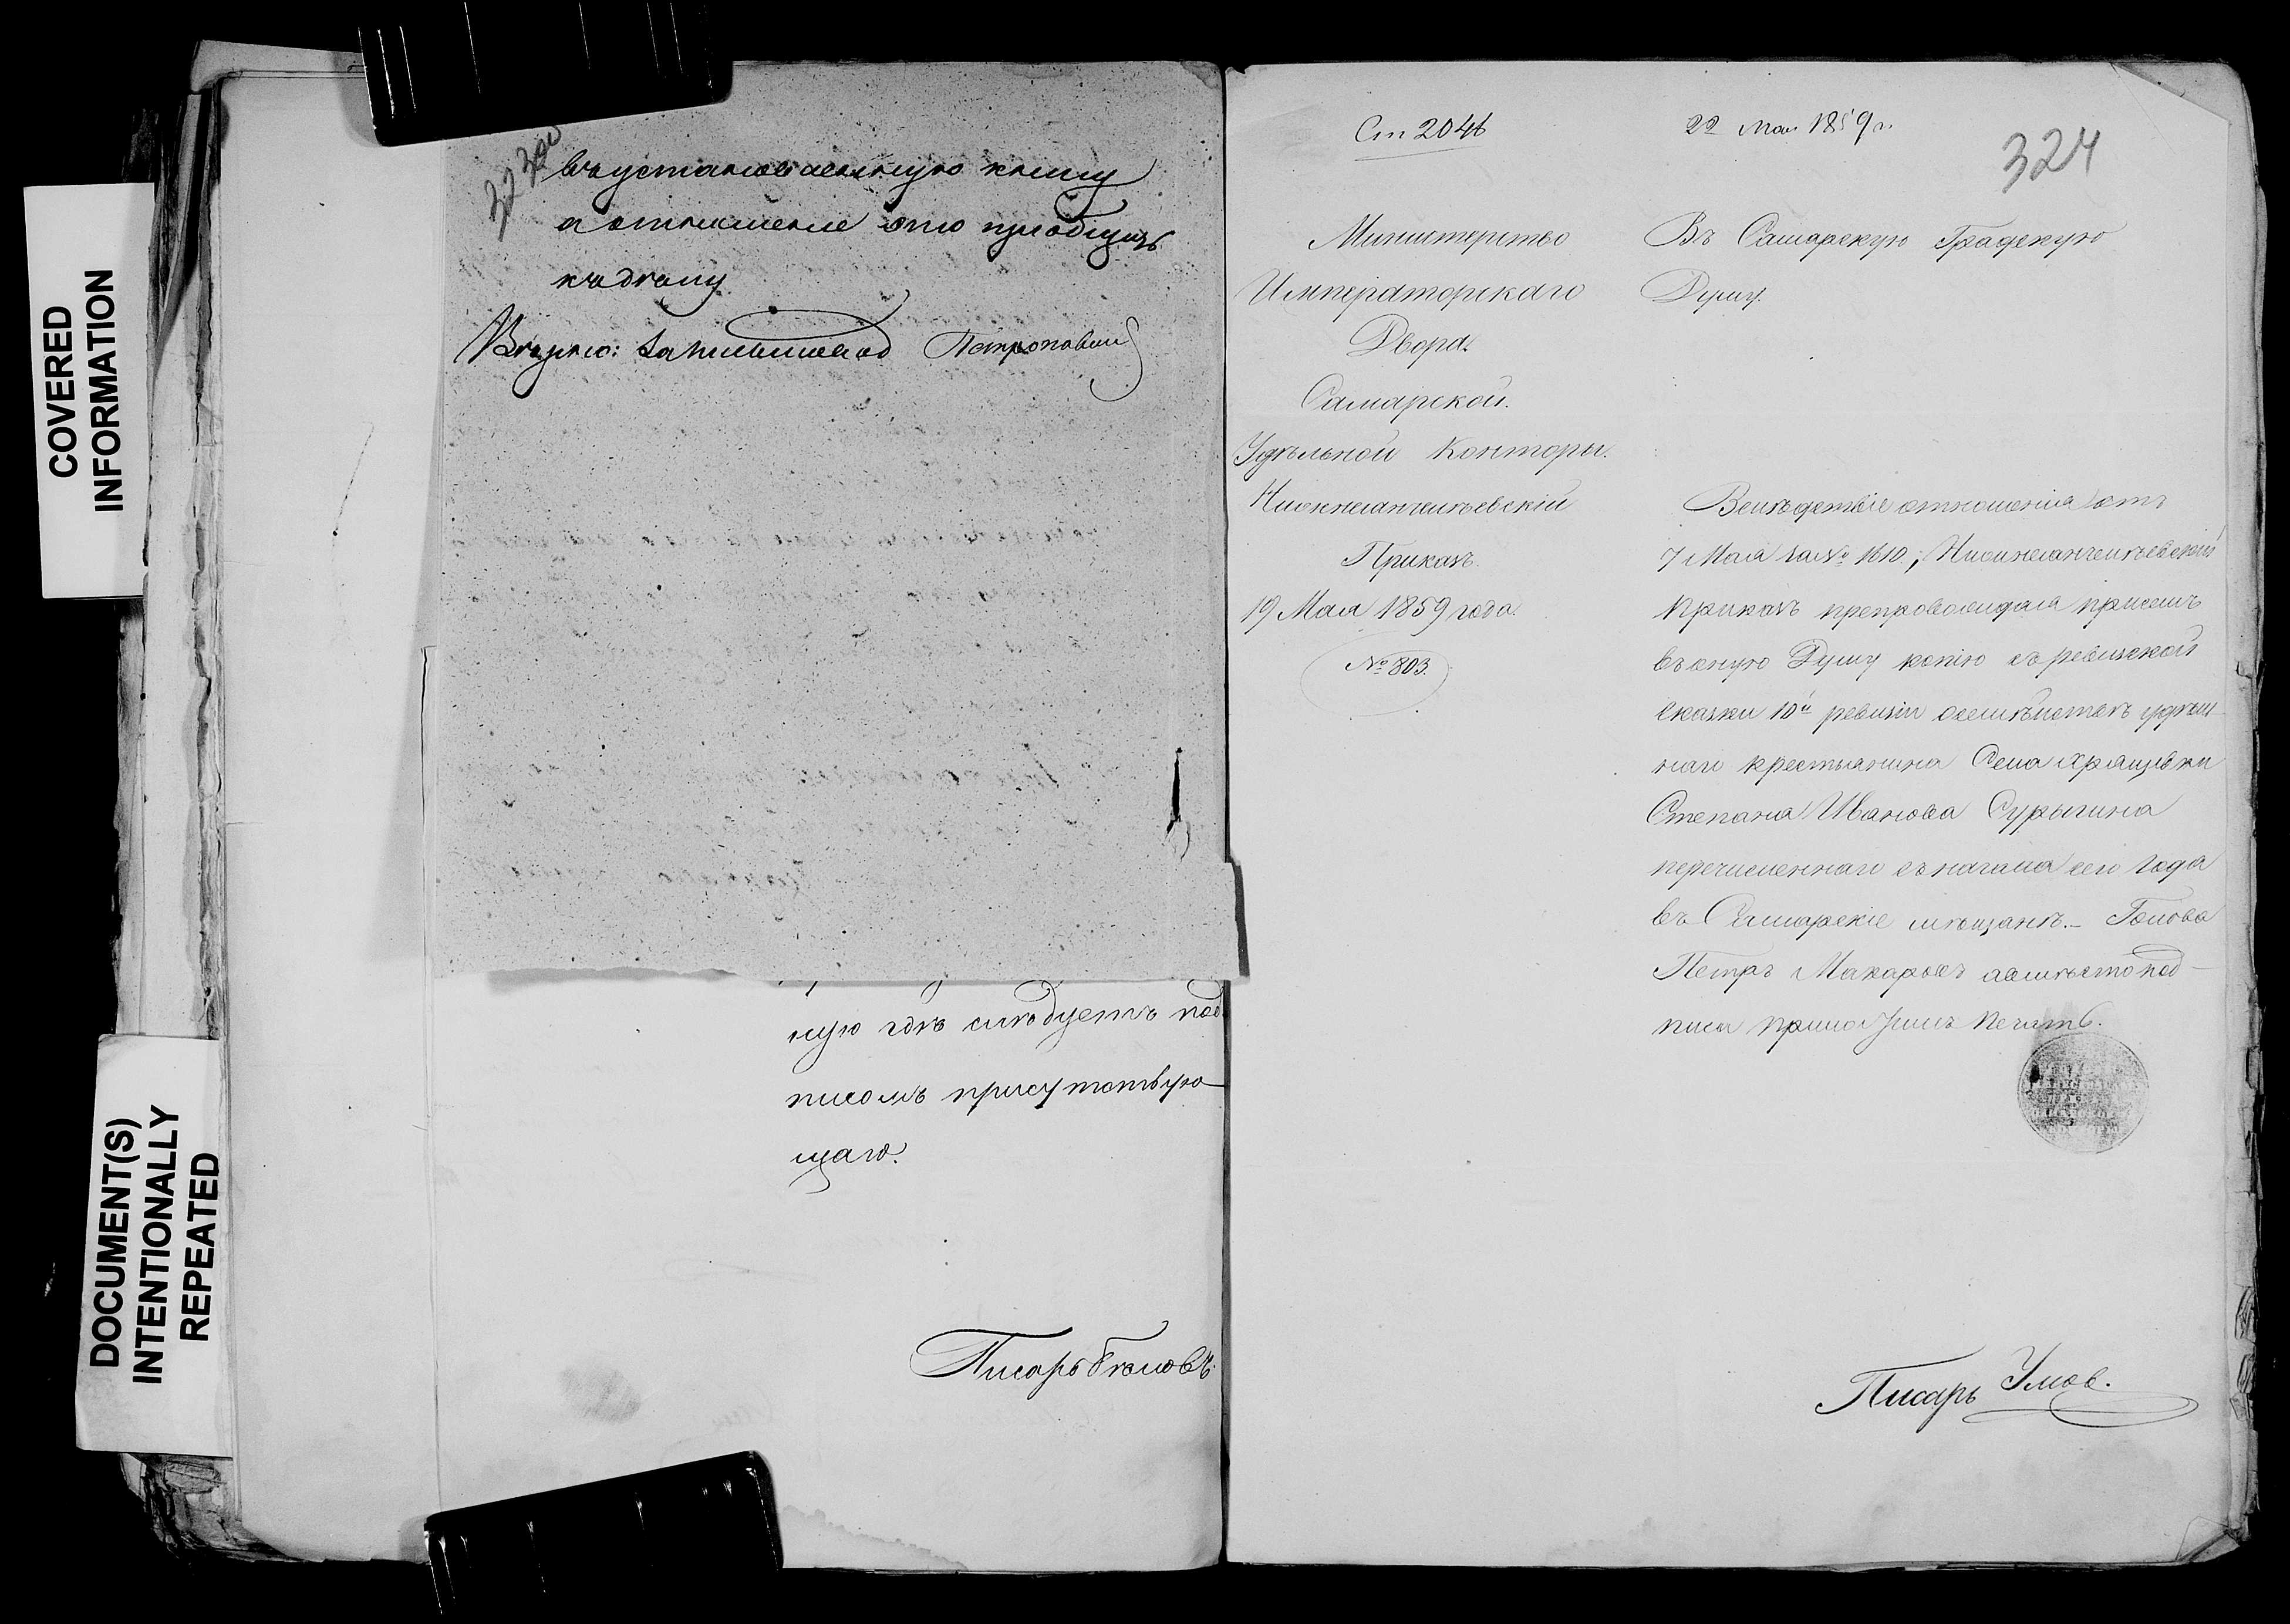 COVERED
INFORMATION
DOCUMENT(S)
INTENTIONALLY
REPEATED
въ установленную книгу
а отношение это приобщить
къ дѣлу
Петропавл
ную гдѣ слѣдуетъ под
писомъ присутствую
щаго.
Писарь Бѣловъ.
Ст 2046
22 Мая 1859 г.
324
Министерство
Императорскаго
Двора.
Самарской.
Удѣльной Конторы.
Нижнесанчелѣевскій
Приказъ.
19 Мая 1859 года.
№ 803.
Въ Самарскую Градскую
Думу.
Вслѣдствіе отношенія отъ
7 Мая за № 1610, Нижнесанчелѣевскій
Приказъ препровождая при семъ
въ оную Думу копію съ ревизской
сказки 10й ревизіи о семѣйствѣ удѣль
наго крестьянина Села Хрящевки
Степана Иванова Сурыгина
перечисленнаго съ начала сего года
въ Самарскіе мѣщанѣ. – Голова
Петръ Макарычъ а вмѣсто под–
писи приложилъ печать.
Писарь Умов.